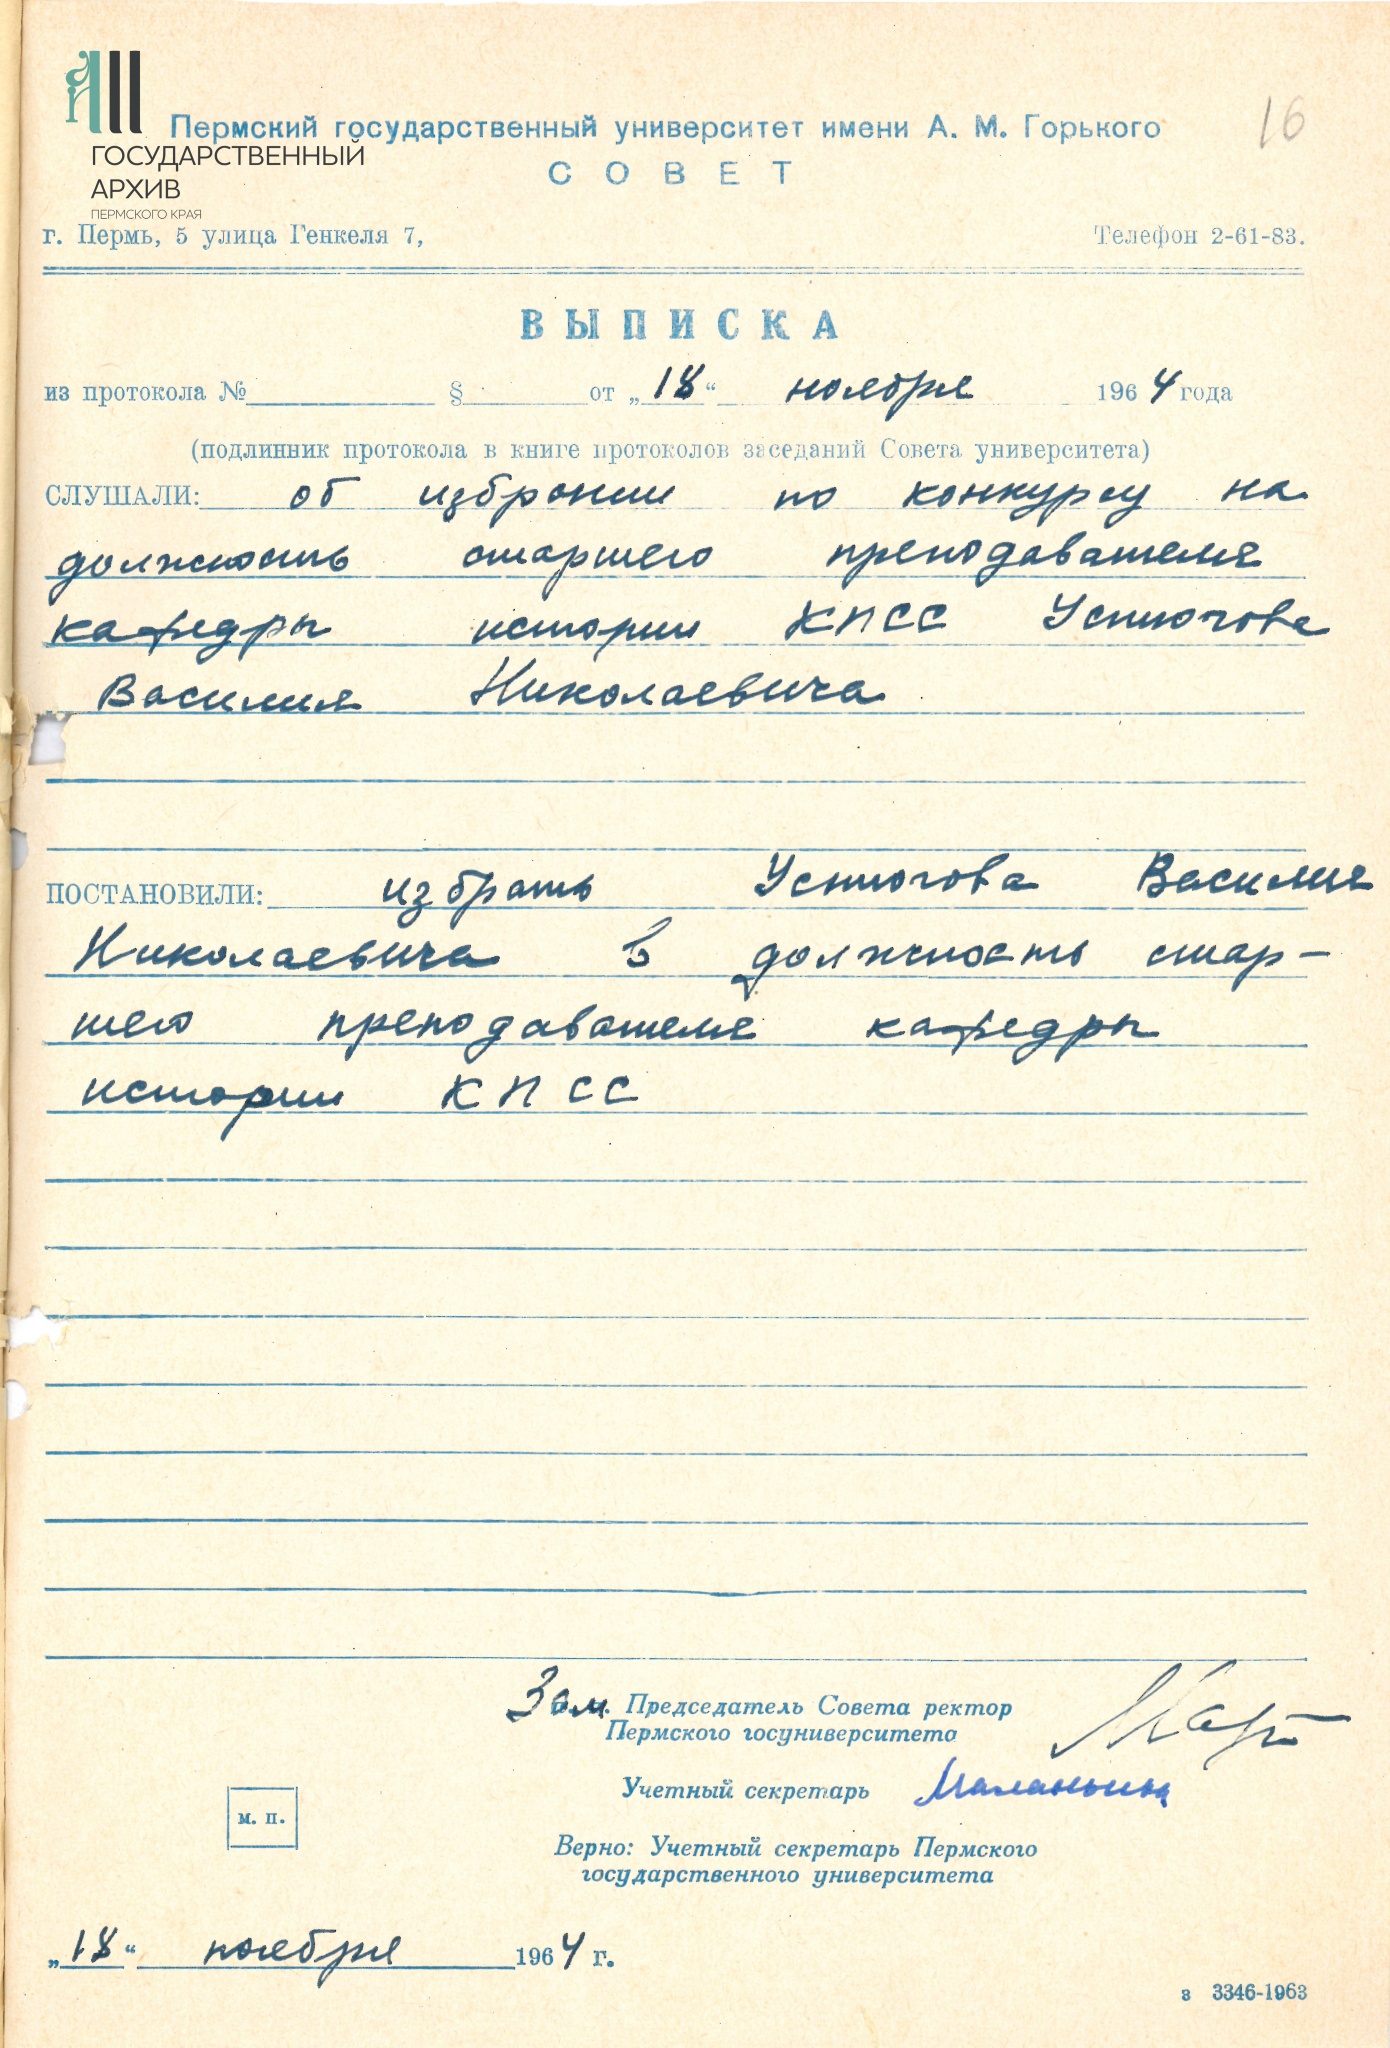 Пермский государственный университет имени А. М. Горького
16
ГОСУДАРСТВЕННЫЙ
АРХИВ
ПЕРМСКОГО КРАЯ
СОВЕТ
г. Пермь, 5 улица Генкеля 7,
Телефон 2-61-83.
ВЫПИСКА
из протокола № § от „18“ ноября 1964 года
(подлинник протокола в книге протоколов заседаний Совета университета)
СЛУШАЛИ: об избрании по конкурсу на
должность старшего преподавателя
кафедры истории КПСС Устюгова
Василия Николаевича
ПОСТАНОВИЛИ: избрать Устюгова Василия
Николаевича в должность стар-
шего преподавателя кафедры
истории КПСС
Зам. Председатель Совета ректор
Пермского госуниверситета
Учетный секретарь Маланьина
м. п.
Верно: Учетный секретарь Пермского
государственного университета
„18“ ноября 1964 г.
з 3346-1963